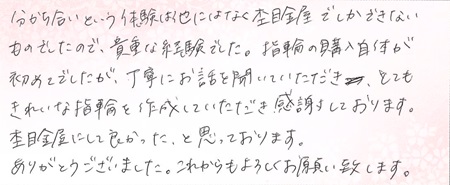 分かち合いという体験は他にはなく杢目金屋でしかできない
ものでしたので、貴重な経験でした。指輪の購入自体が
初めてでしたが、丁寧にお話を聞いていただき、とても
きれいな指輪を作成していただき感謝しております。
杢目金屋にして良かった、と思っております。
ありがとうございました。これからもよろしくお願い致します。